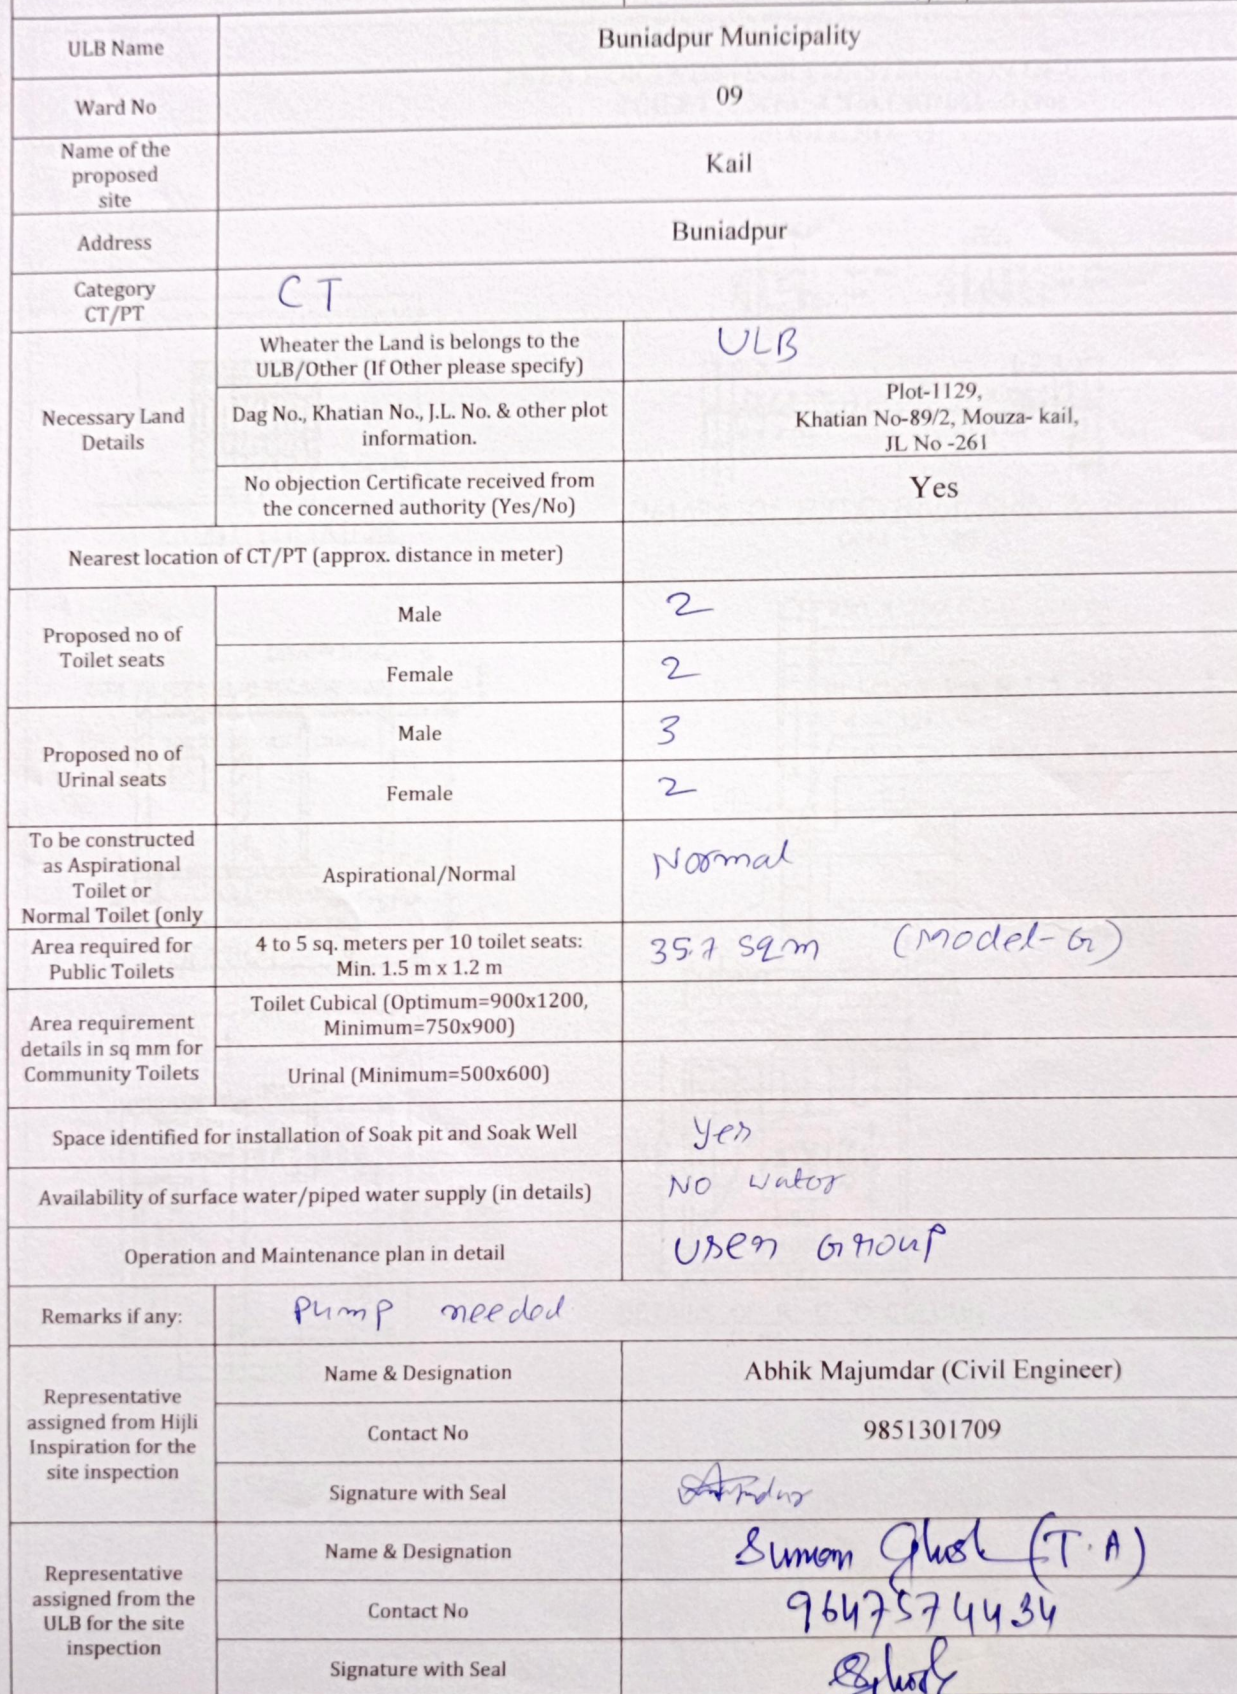 ULB Name
Buniadpur Municipality
Ward No
09
Name of the
proposed
site
Kail
Address
Buniadpur
Category
CT/PT
CT
Necessary Land
Details
Wheater the Land is belongs to the
ULB/Other (If Other please specify)
ULB
Dag No., Khatian No., J.L. No. & other plot
information.
Plot-1129,
Khatian No-89/2, Mouza- kail,
JL No -261
No objection Certificate received from
the concerned authority (Yes/No)
Yes
Nearest location of CT/PT (approx. distance in meter)
Proposed no of
Toilet seats
Male
2
Female
2
Proposed no of
Urinal seats
Male
3
Female
2
To be constructed
as Aspirational
Toilet or
Normal Toilet (only
Aspirational/Normal
Normal
Area required for
Public Toilets
4 to 5 sq. meters per 10 toilet seats:
Min. 1.5 m x 1.2 m
35.7 sqm (Model-G)
Area requirement
details in sq mm for
Community Toilets
Toilet Cubical (Optimum=900x1200,
Minimum=750x900)
Urinal (Minimum=500x600)
Space identified for installation of Soak pit and Soak Well
Yes
Availability of surface water/piped water supply (in details)
NO water
Operation and Maintenance plan in detail
User Group
Remarks if any:
Pump needed
Representative
assigned from Hijli
Inspiration for the
site inspection
Name & Designation
Abhik Majumdar (Civil Engineer)
Contact No
9851301709
Signature with Seal
Representative
assigned from the
ULB for the site
inspection
Name & Designation
Suman Ghosh (T.A)
Contact No
9647574434
Signature with Seal